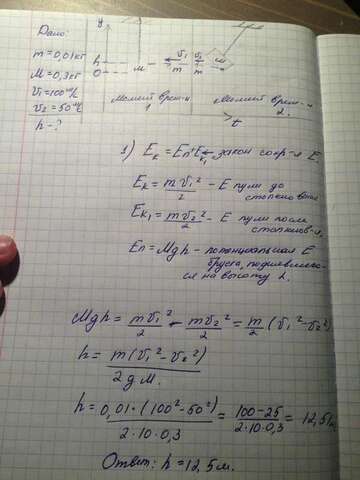 Дано:
m = 0,01 кг
M = 0,3 кг
v₁ = 100 м/с
v₂ = 50 м/с
h - ?
y
h
0
м
v₁
m
v₂
m
Момент врем-и
1
Момент врем-и
2.
t
1) Eк = Eп + Eк₁ - закон сохр-я E.
Eк = mv₁²/2 - E пули до
столкновения
Eк₁ = mv₂²/2 - E пули после
столкновен-я.
Eп = Mgh - потенциальная E
бруска, поднявшего-
ся на высоту h.
Mgh = mv₁²/2 - mv₂²/2 = m/2 (v₁² - v₂²)
h = m(v₁² - v₂²)/2gM.
h = 0,01 · (100² - 50²)/2·10·0,3 = 100-25/2·10·0,3 = 12,5 м.
Ответ: h = 12,5 м.